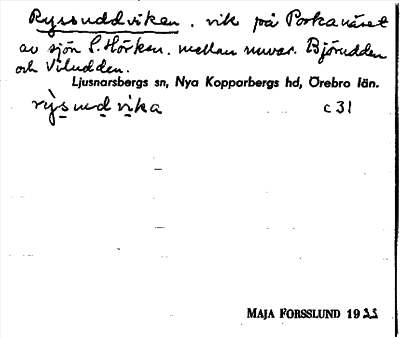 Ryssuddviken. vik på Porkanäset
av sjön S. Hörken. mellan nuvar. Björudden
och Viludden.
Ljusnarsbergs sn, Nya Kopparbergs hd, Örebro län.
rỳsudvika c 31
MAJA FORSSLUND 1933